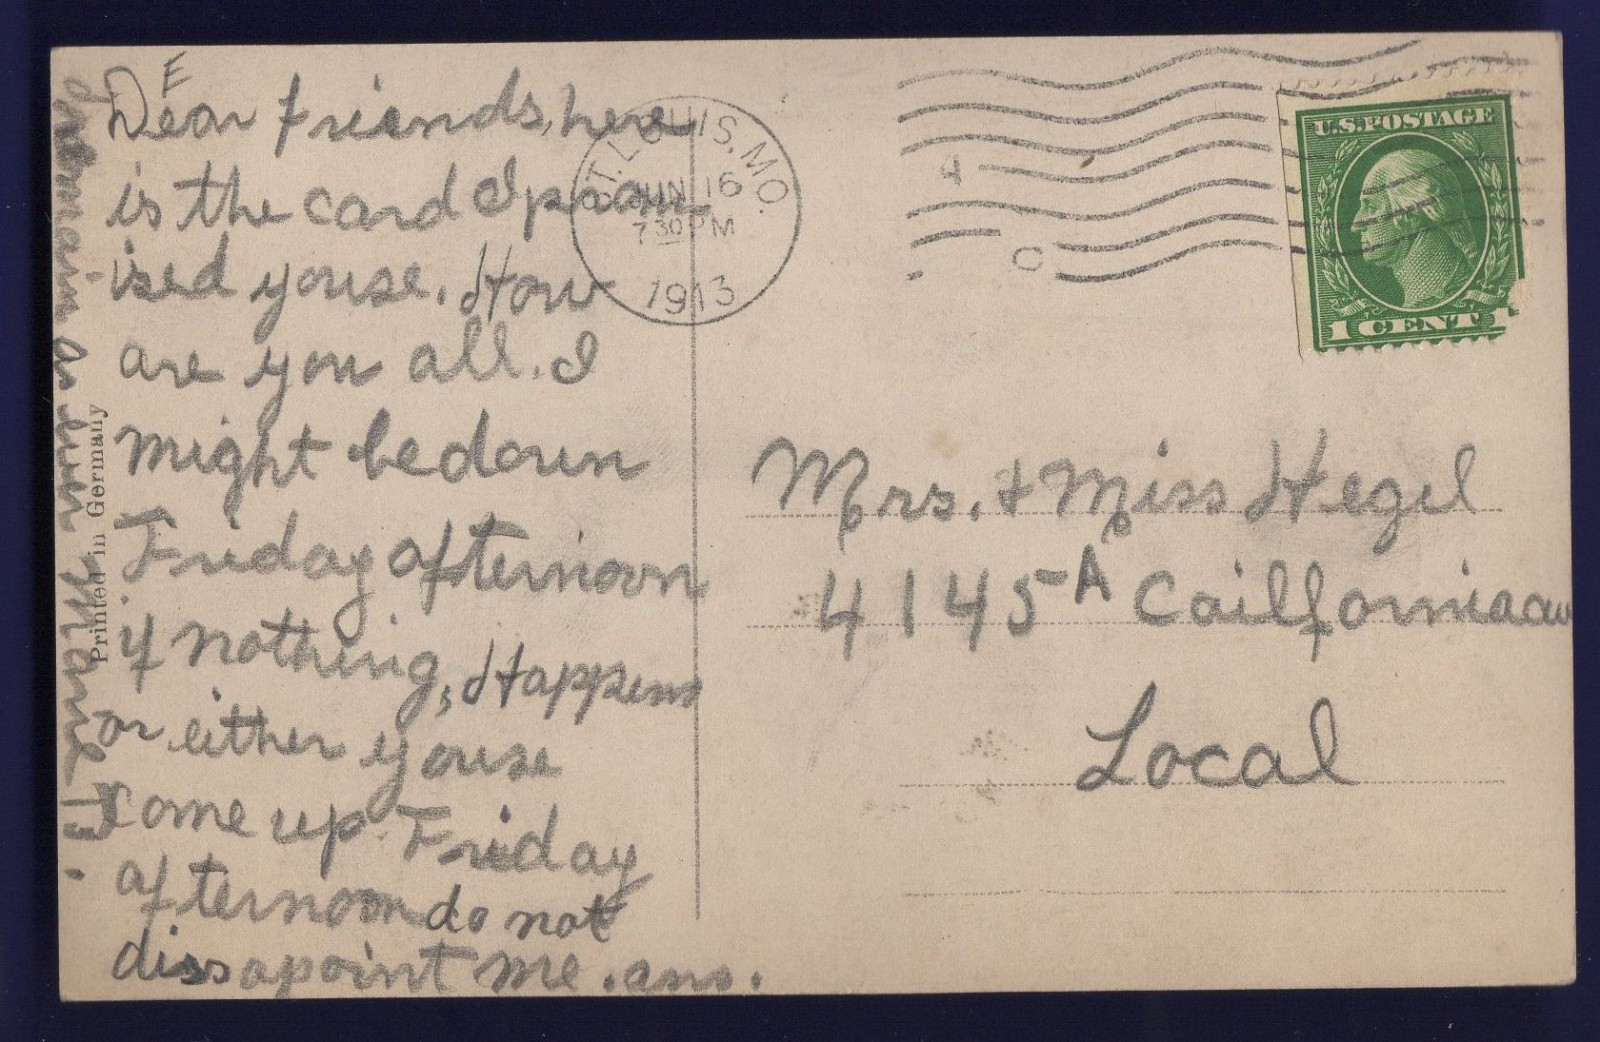 Dear friends, here
is the card I prom
ised youse. How
are you all. I
might be down
Friday afternoon
if nothing, Happens
or either youse
come up Friday
afternoon do not
dissapoint me. ans.
I remain as ever
Printed in Germany
ST. LOUIS, MO.
JUN 16
7 30 PM
1913
U.S. POSTAGE
1 CENT 1
Mrs. + Miss Hegel
4145A Cailforniaav
Local